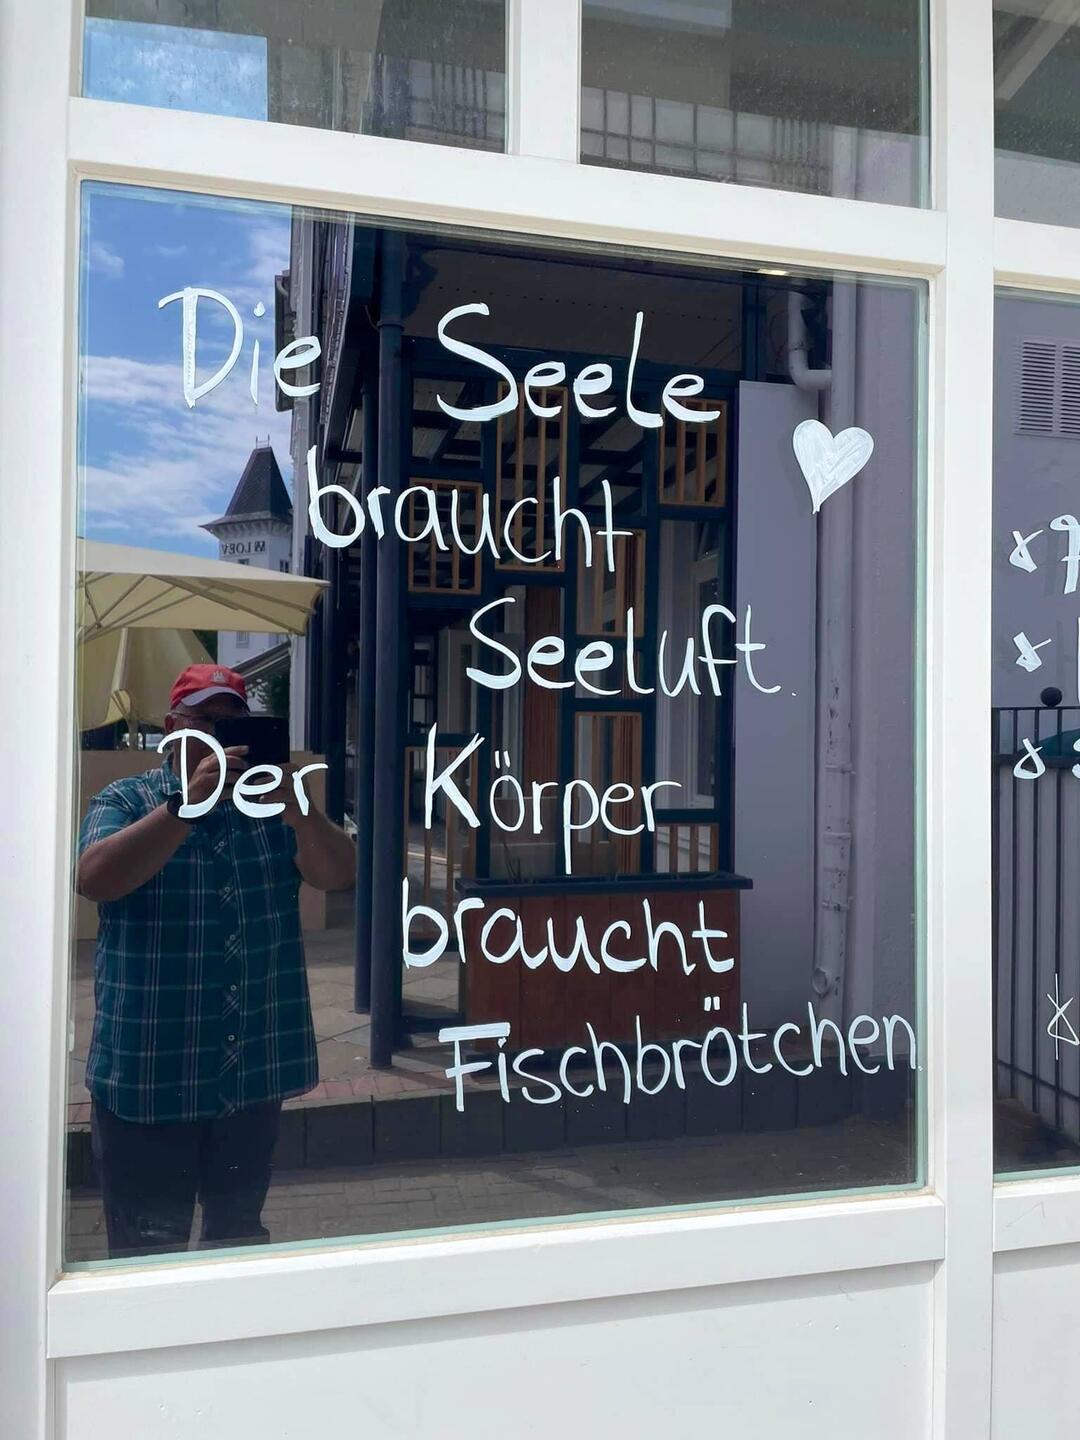 Die Seele
braucht
Seeluft.
Der Körper
braucht
Fischbrötchen.